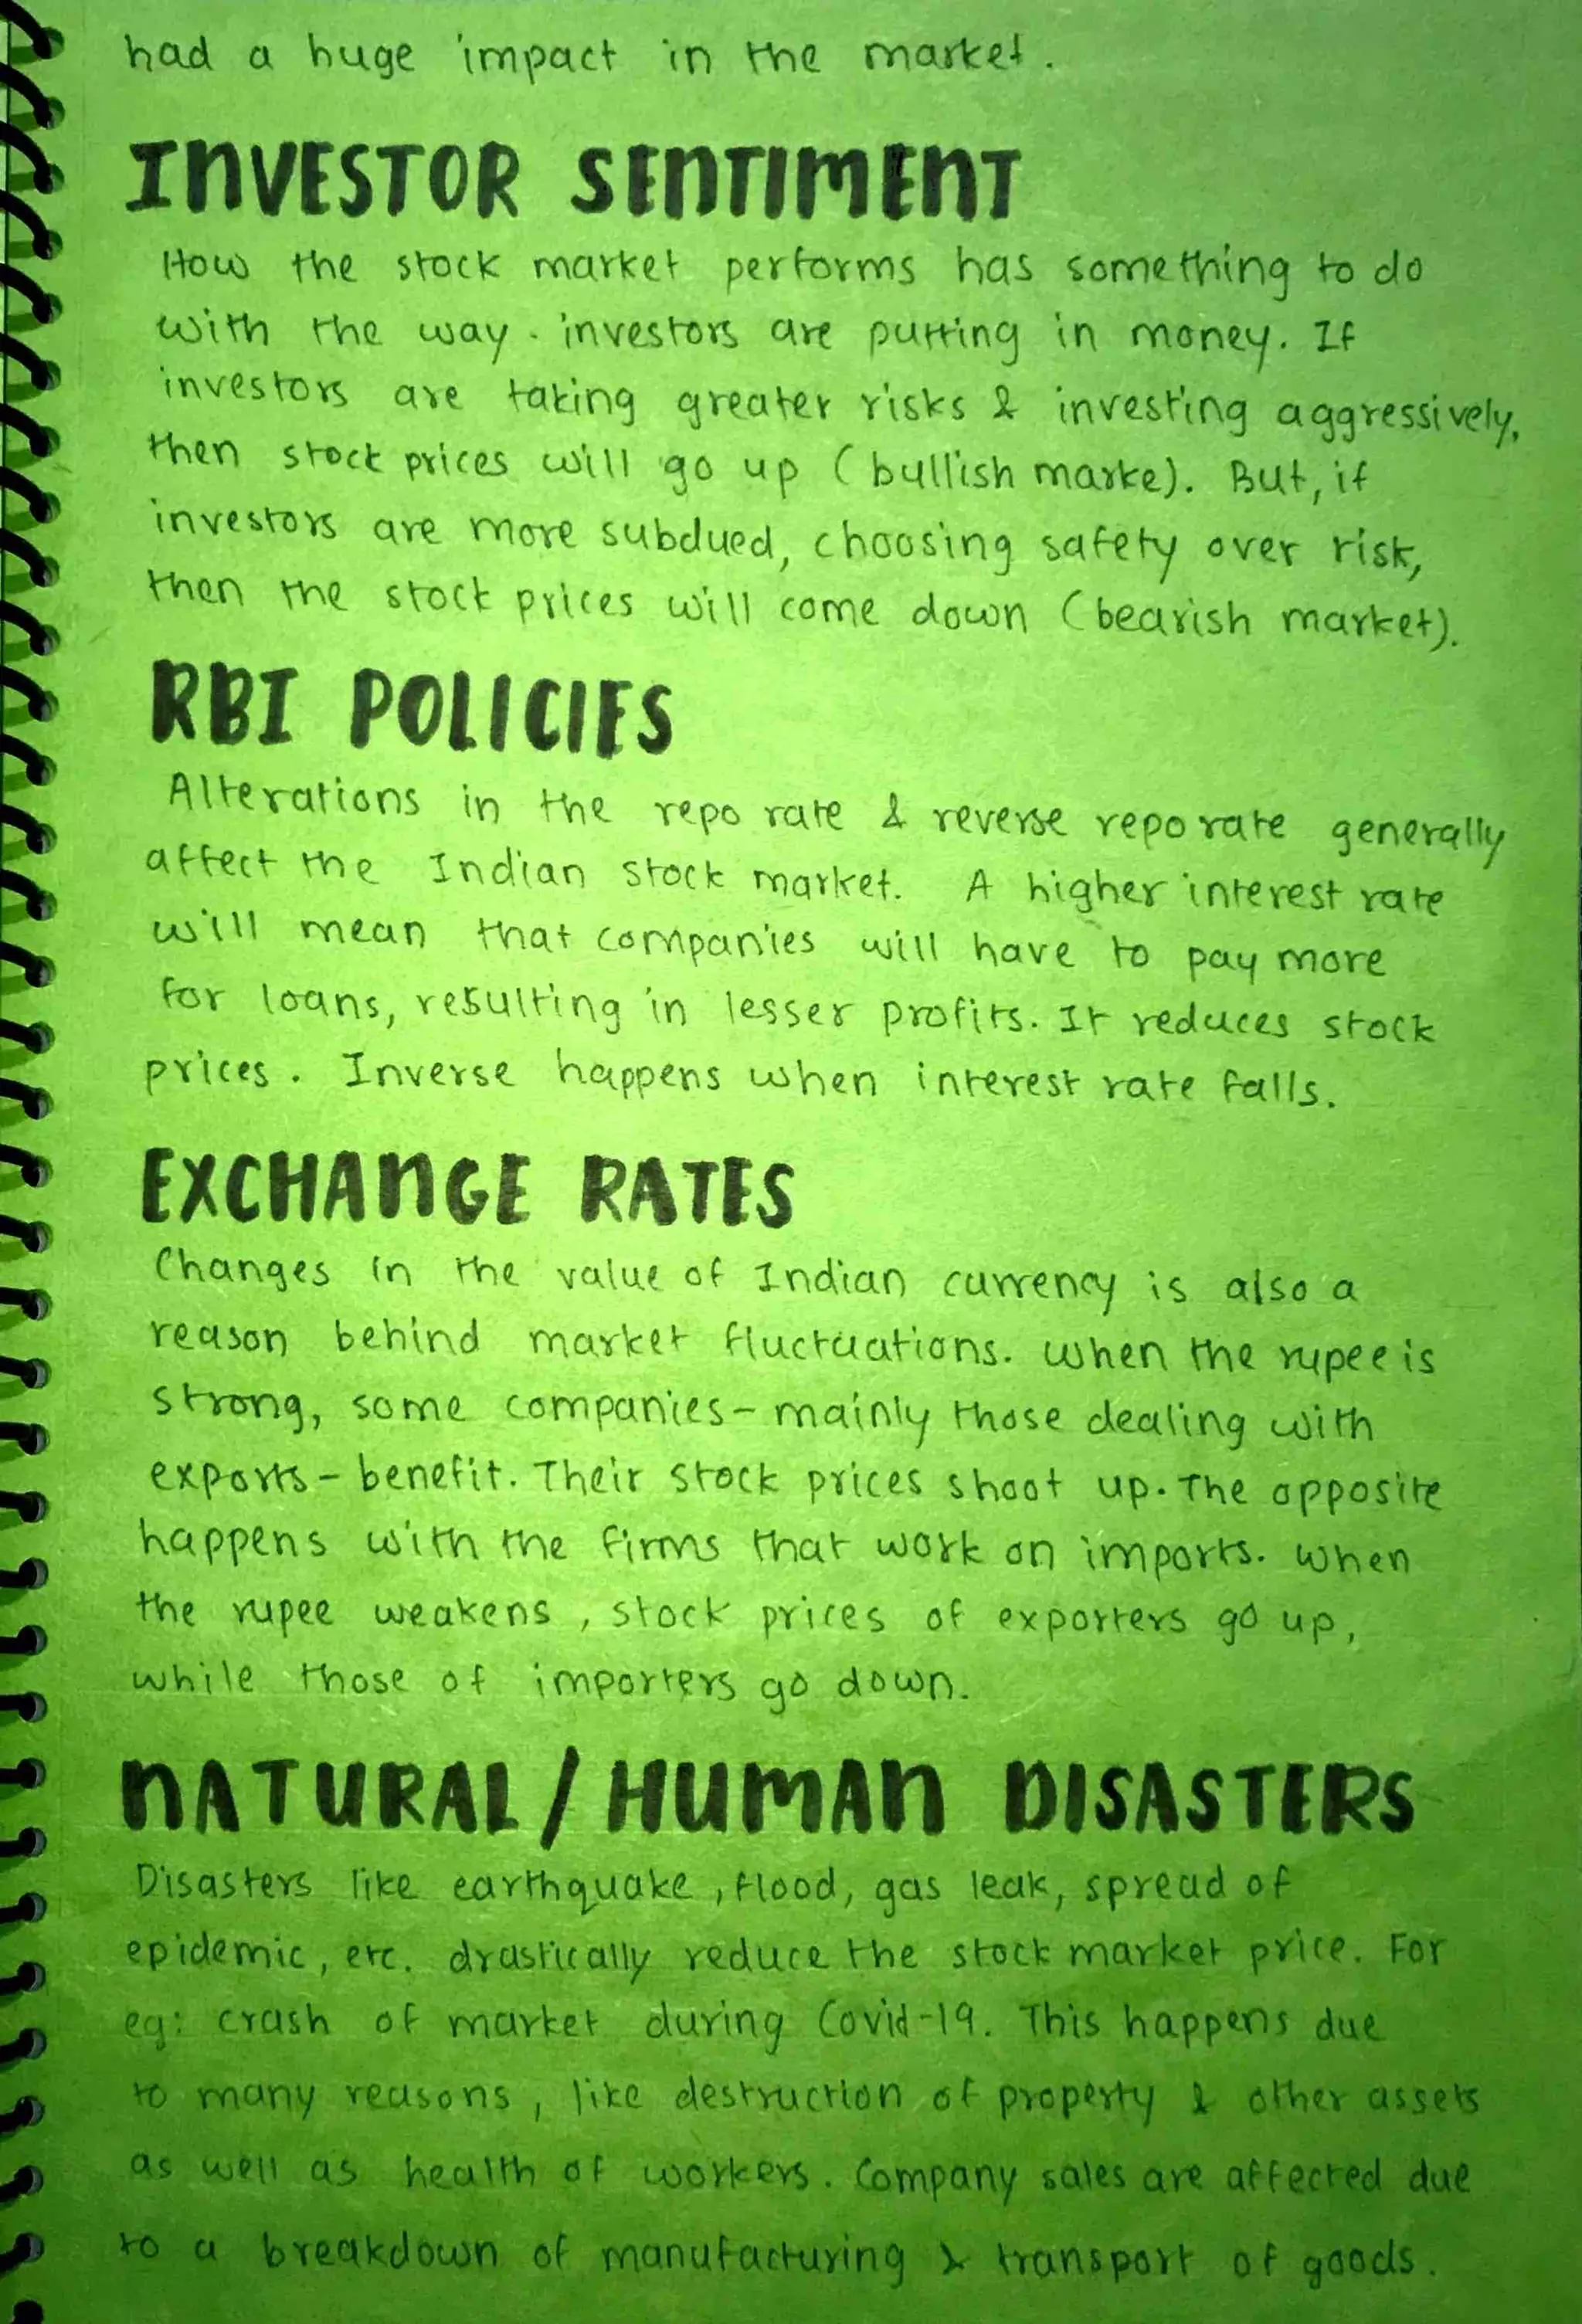 had a huge impact in the market.
INVESTOR SENTIMENT
How the stock market performs has something to do
with the way. investors are putting in money. If
investors are taking greater risks & investing aggressively,
then stock prices will go up (bullish marke). But, if
investors are more subdued, choosing safety over risk,
then the stock prices will come down (bearish market).
RBI POLICIES
Alterations in the repo rate & reverse repo rate generally
affect the Indian stock market. A higher interest rate
will mean that companies will have to pay more
for loans, resulting in lesser profits. It reduces stock
prices. Inverse happens when interest rate falls.
EXCHANGE RATES
Changes in the value of Indian currency is also a
reason behind market fluctuations. When the rupee is
strong, some companies - mainly those dealing with
exports - benefit. Their stock prices shoot up. The opposite
happens with the firms that work on imports. When
the rupee weakens, stock prices of exporters go up,
while those of importers go down.
NATURAL/HUMAN DISASTERS
Disasters like earthquake, flood, gas leak, spread of
epidemic, etc. drastically reduce the stock market price. For
eg: crash of market during Covid-19. This happens due
to many reasons, like destruction of property & other assets
as well as health of workers. Company sales are affected due
to a breakdown of manufacturing & transport of goods.